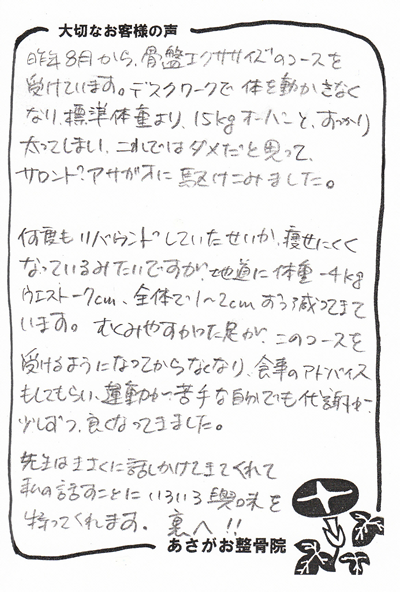 大切なお客様の声
昨年8月から、骨盤エクササイズのコースを
受けています。デスクワークで体を動かさなく
なり、標準体重より、15kgオーバーと、すっかり
太ってしまい、これではダメだと思って、
サロンド?アサガオに駆けこみました。
何度もリバウンドしていたせいか、痩せにくく
なっているみたいですが、地道に体重-4kg
ウエスト-7cm、全体で1~2cmずつ減ってきて
います。むくみやすかった足が、このコースを
受けるようになってからなくなり、食事のアドバイス
もしてもらい、運動が苦手な自分でも代謝が
少しずつ、良くなってきました。
先生はきさくに話しかけてきてくれて
私の話すことにいろいろ興味を
持ってくれます。裏へ!!
あさがお整骨院